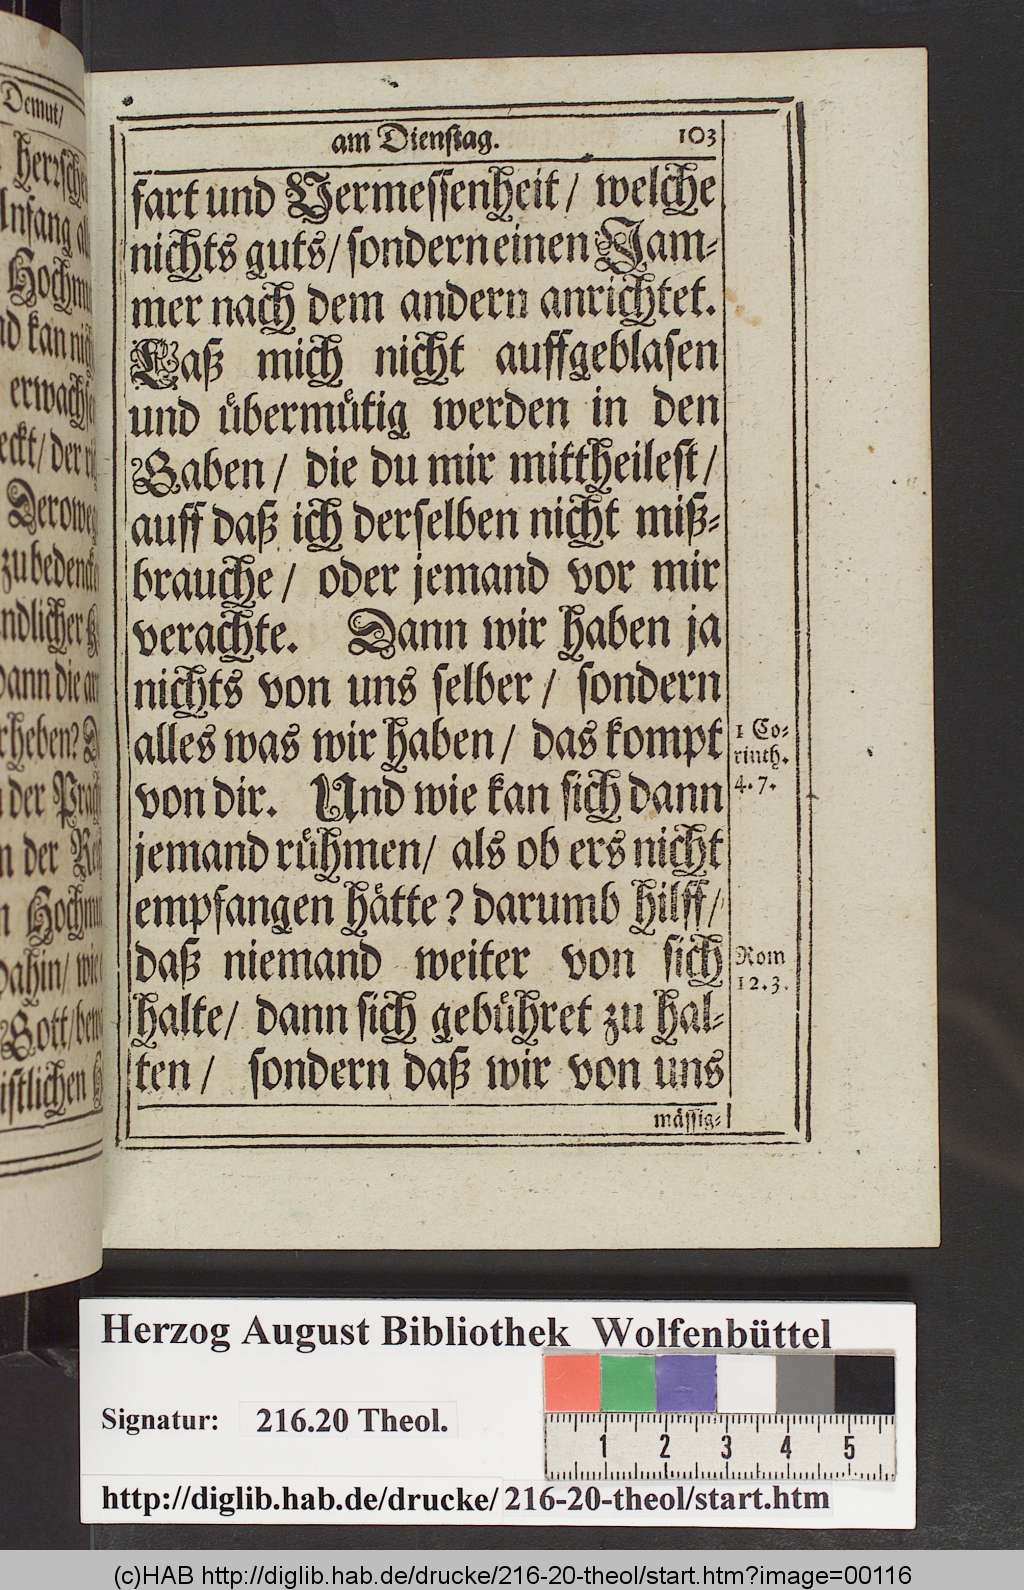 Demut/
Hochmu
nd kan nich
erwachse
eckt/ der
Derowe
zubedencke
ndlicher
dann die
rheben?
der Prach
n der
Hochmu
dahin/ wie
Gott/
istlichen
am Dienstag. 103
fart und Vermessenheit/ welche
nichts guts/ sondern einen Jam-
mer nach dem andern anrichtet.
Laß mich nicht auffgeblasen
und übermütig werden in den
Gaben/ die du mir mittheilest/
auff daß ich derselben nicht miß-
brauche/ oder jemand vor mir
verachte. Dann wir haben ja
nichts von uns selber/ sondern
alles was wir haben/ das kompt
von dir. Und wie kan sich dann
jemand rühmen/ als ob ers nicht
empfangen hätte? darumb hilff/
daß niemand weiter von sich
halte/ dann sich gebühret zu hal-
ten/ sondern daß wir von uns
mässig-
1 Co-
rinth.
4. 7.
Rom
12. 3.
Herzog August Bibliothek Wolfenbüttel
Signatur: 216.20 Theol.
1 2 3 4 5
http://diglib.hab.de/drucke/216-20-theol/start.htm
(c)HAB http://diglib.hab.de/drucke/216-20-theol/start.htm?image=00116